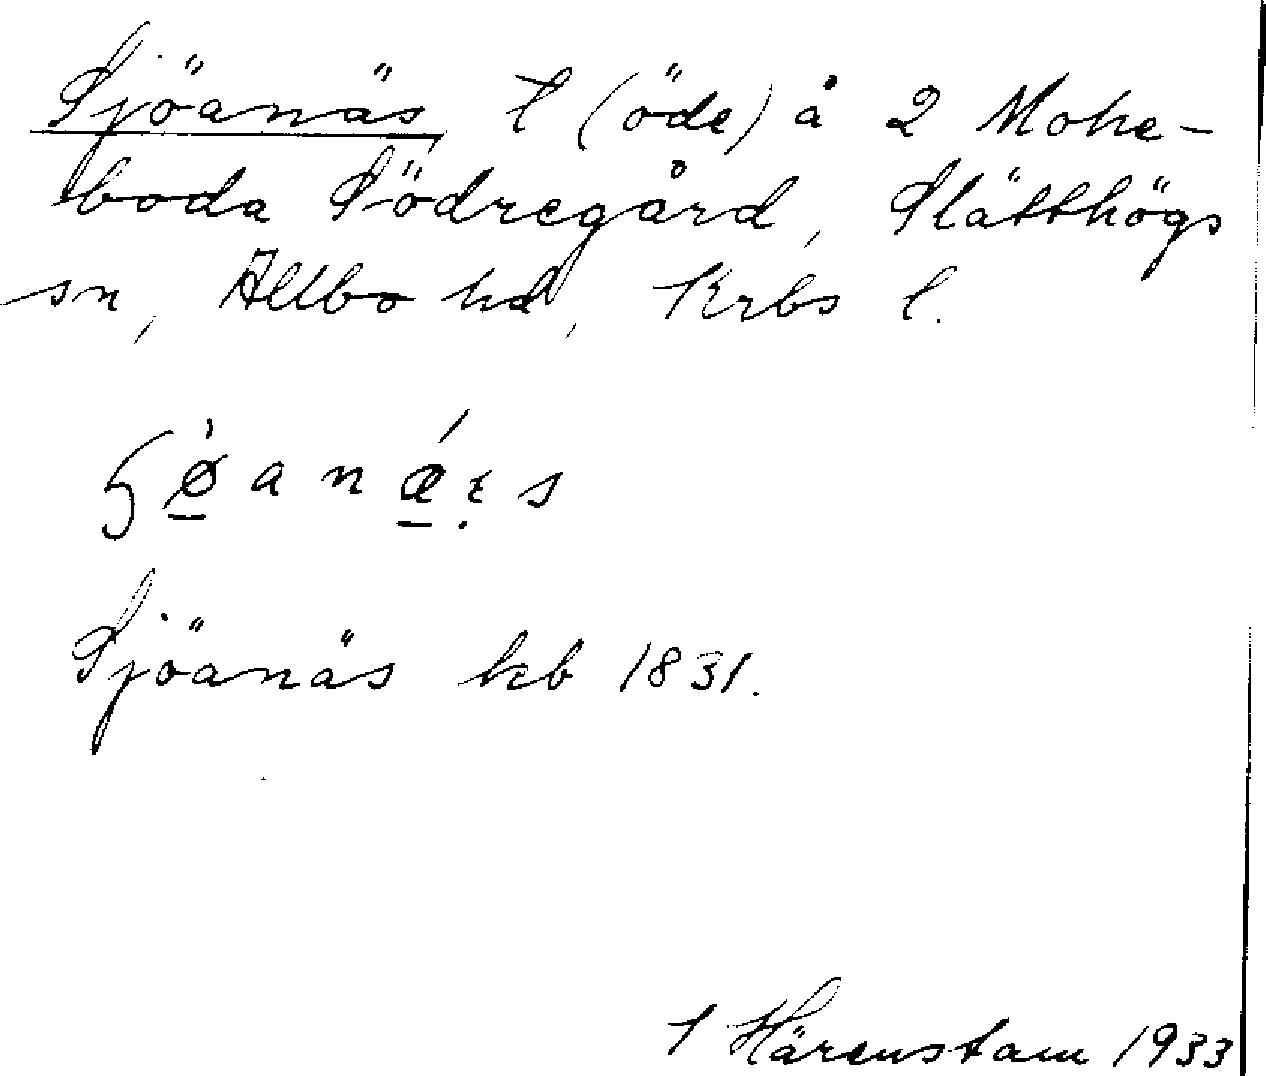 Sjöanäs, t (öde) å 2 Mohe-
boda Södregård, Slätthögs
sn, Allbo hd, Krbs l.
Sjöanäs kb 1831.
Härenstam 1933